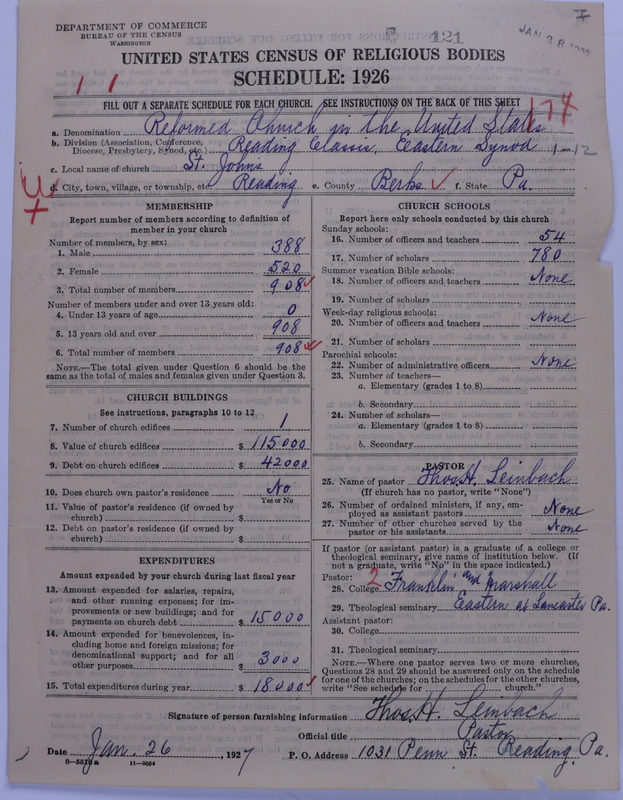 DEPARTMENT OF COMMERCE
BUREAU OF THE CENSUS
WASHINGTON
7
121
JAN 28
UNITED STATES CENSUS OF RELIGIOUS BODIES
SCHEDULE: 1926
1 1
FILL OUT A SEPARATE SCHEDULE FOR EACH CHURCH. SEE INSTRUCTIONS ON THE BACK OF THIS SHEET
174
a. Denomination Reformed Church in the United States
b. Division (Association, Conference, Diocese, Presbytery, Synod, etc.) Reading Classis, Eastern Synod 1-12
c. Local name of church St. Johns
d. City, town, village, or township, etc. Reading e. County Berks f. State Pa.
MEMBERSHIP
Report number of members according to definition of
member in your church
Number of members, by sex:
1. Male 388
2. Female 520
3. Total number of members 908
Number of members under and over 13 years old:
4. Under 13 years of age 0
5. 13 years old and over 908
6. Total number of members 908
NOTE.—The total given under Question 6 should be
same as the total of males and females given under Question 3.
CHURCH BUILDINGS
See instructions, paragraphs 10 to 12
7. Number of church edifices 1
8. Value of church edifices $ 115000
9. Debt on church edifices $ 42000
10. Does church own pastor's residence No
Yes or No
11. Value of pastor's residence (if owned by
church) $
12. Debt on pastor's residence (if owned by
church) $
EXPENDITURES
Amount expended by your church during last fiscal year
13. Amount expended for salaries, repairs,
and other running expenses; for im-
provements or new buildings; and for
payments on church debt $ 15000
14. Amount expended for benevolences, in-
cluding home and foreign missions; for
denominational support; and for all
other purposes $ 3000
15. Total expenditures during year $ 18000
CHURCH SCHOOLS
Report here only schools conducted by this church
Sunday schools:
16. Number of officers and teachers 54
17. Number of scholars 780
Summer vacation Bible schools:
18. Number of officers and teachers None
19. Number of scholars
Week-day religious schools:
20. Number of officers and teachers None
21. Number of scholars
Parochial schools:
22. Number of administrative officers None
23. Number of teachers—
a. Elementary (grades 1 to 8)
b. Secondary
24. Number of scholars—
a. Elementary (grades 1 to 8)
b. Secondary
PASTOR
25. Name of pastor Thos. H. Leinbach
(If church has no pastor, write "None")
26. Number of ordained ministers, if any, em-
ployed as assistant pastors None
27. Number of other churches served by the
pastor or his assistants None
If pastor (or assistant pastor) is a graduate of a college or
theological seminary, give name of institution below. (If
not a graduate, write "No" in the space indicated.)
Pastor: 2
28. College Franklin and Marshall
29. Theological seminary Eastern at Lancaster Pa.
Assistant pastor:
30. College
31. Theological seminary
NOTE.—Where one pastor serves two or more churches,
Questions 28 and 29 should be answered only on the schedule
for one of the churches; on the schedules for the other churches,
write "See schedule for church."
Signature of person furnishing information Thos. H. Leinbach
Official title Pastor
Date Jan. 26, 1927 P. O. Address 1031 Penn St. Reading, Pa.
8—5518a 11—9054